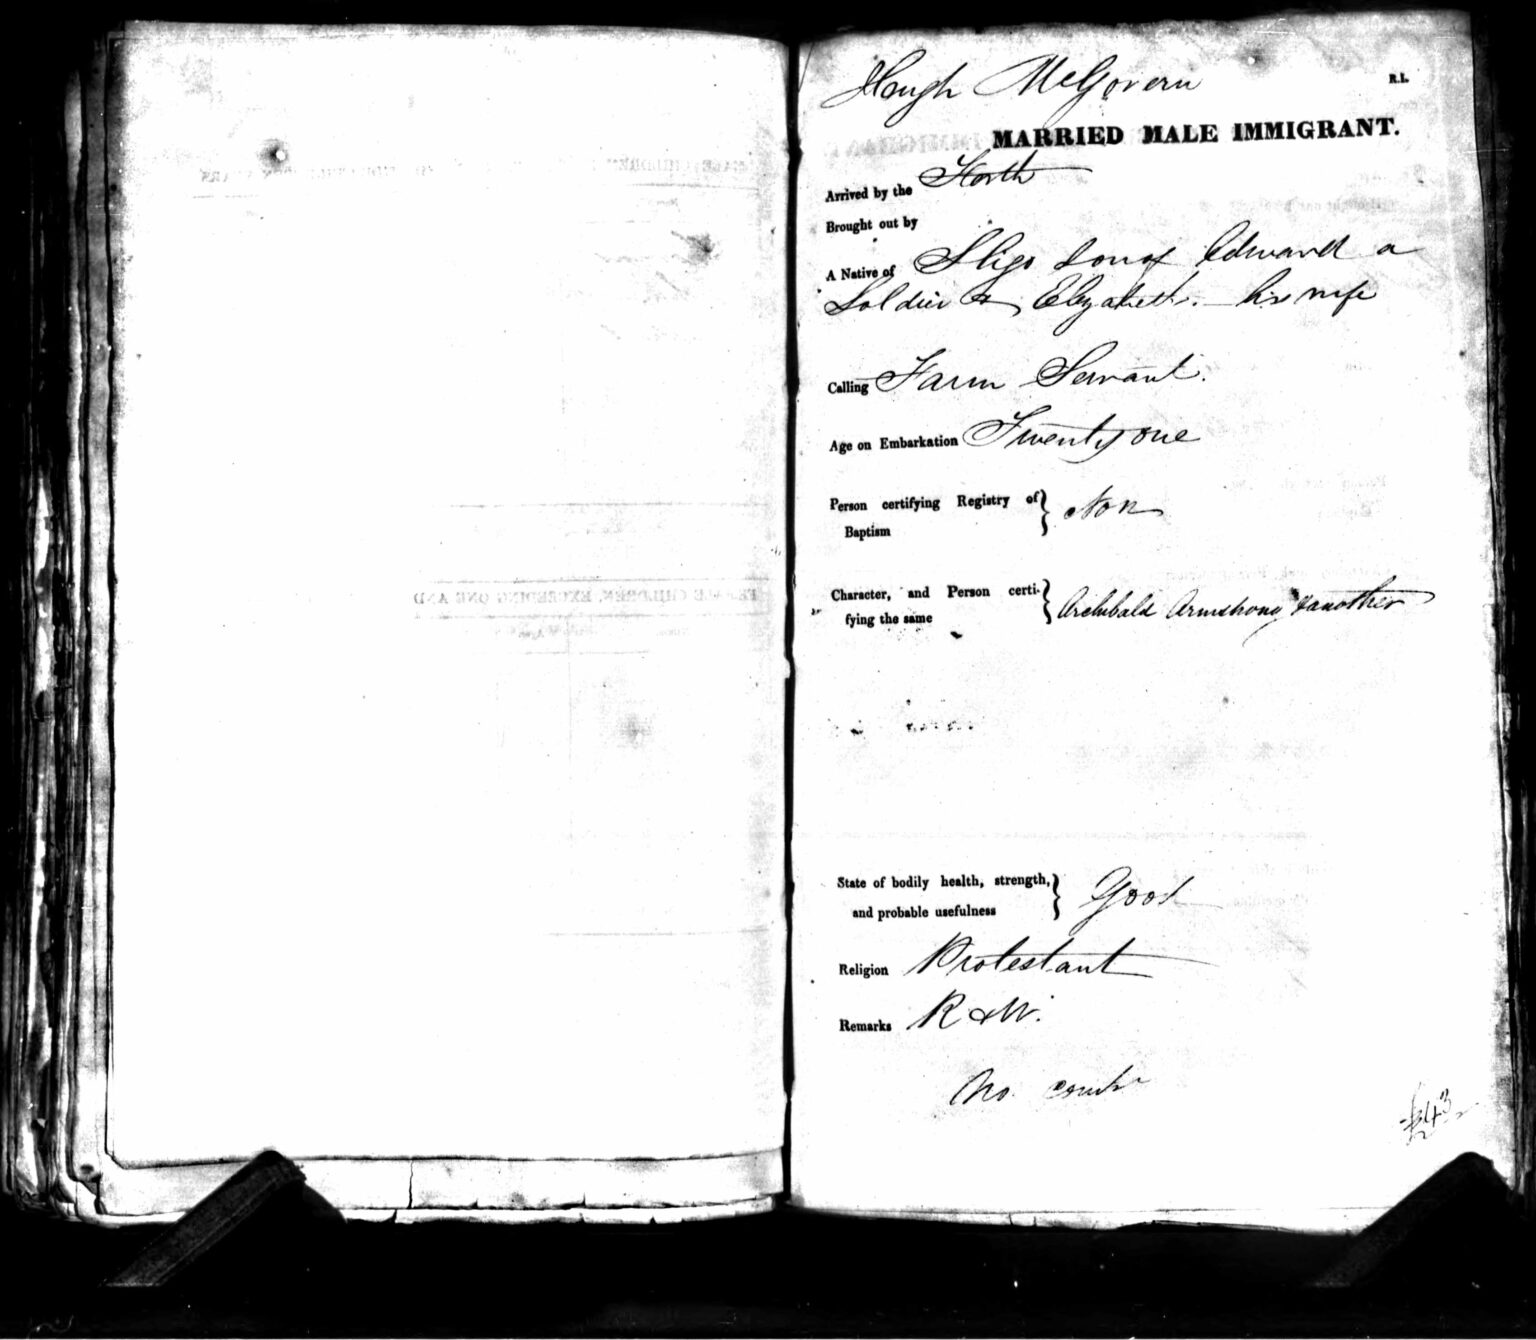 Hugh McGovern
R.I.
MARRIED MALE IMMIGRANT.
Arrived by the Forth
Brought out by
A Native of Sligo Son of Edward a
Soldier & Elizabeth his wife
Calling Farm Servant.
Age on Embarkation Twenty one
Person certifying Registry of
Baptism
Non
Character, and Person certi-
fying the same
Archibald Armstrong & another
State of bodily health, strength,
and probable usefulness
Good
Religion Protestant
Remarks R & W.
No
FEMALE CHILDREN, EXCEEDING ONE AND